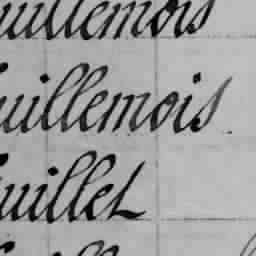 uillemois
uillemois
uillet